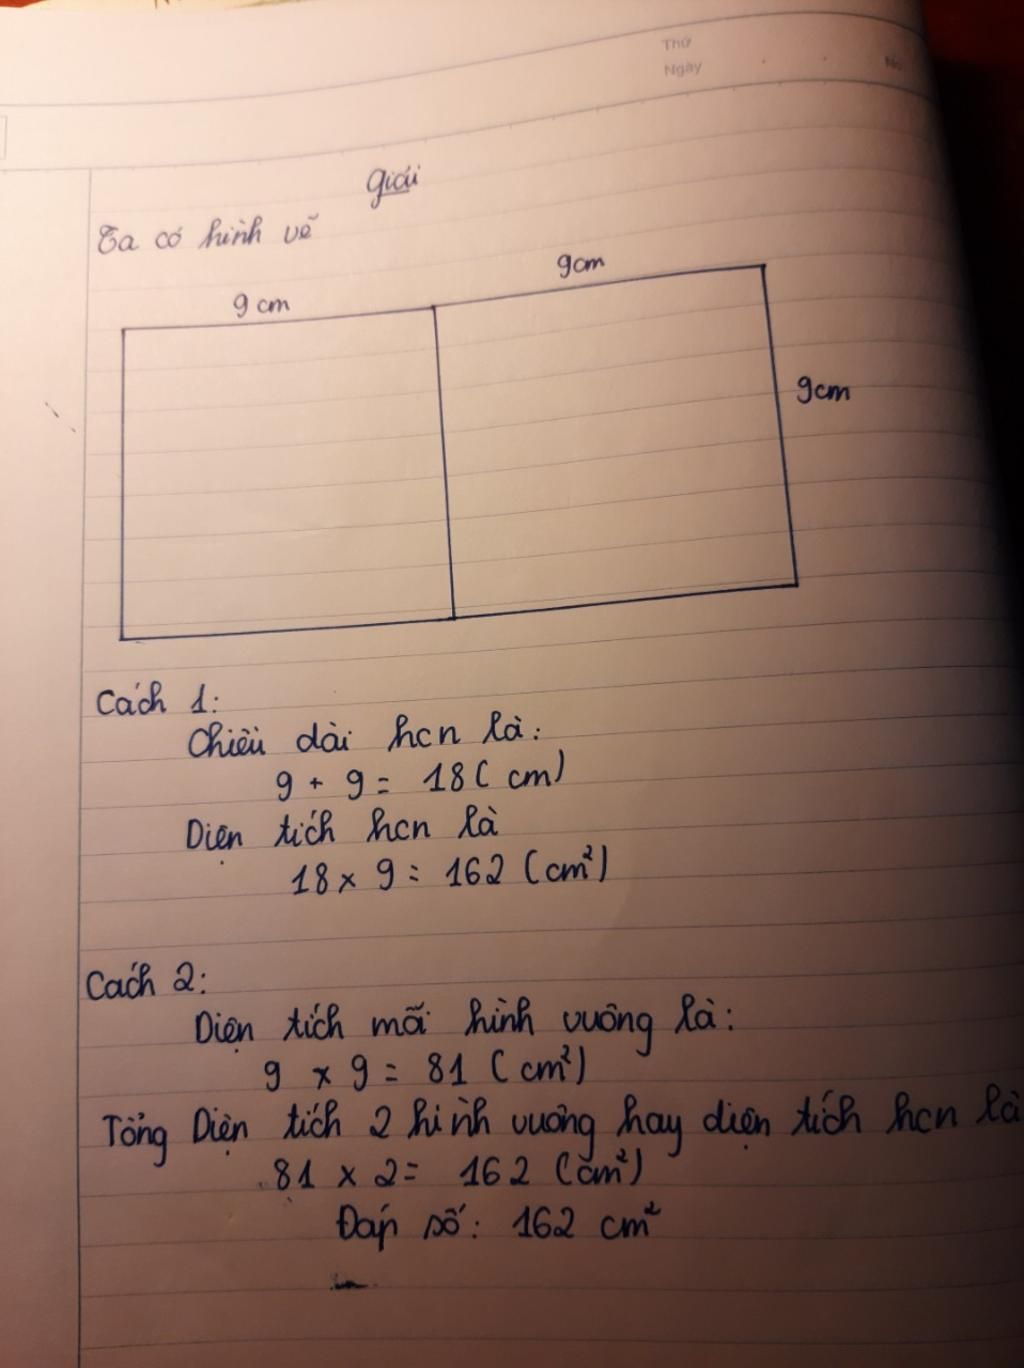 Thứ
Ngày
No
Giải
Ta có hình vẽ
9 cm
9cm
9cm
Cách 1:
Chiều dài hcn là:
9 + 9 = 18 ( cm)
Diện tích hcn là
18 x 9 = 162 (cm²)
Cách 2:
Diện tích mỗi hình vuông là:
9 x 9 = 81 ( cm²)
Tổng Diện tích 2 hình vuông hay diện tích hcn là
81 x 2 = 162 (cm²)
Đáp số: 162 cm²